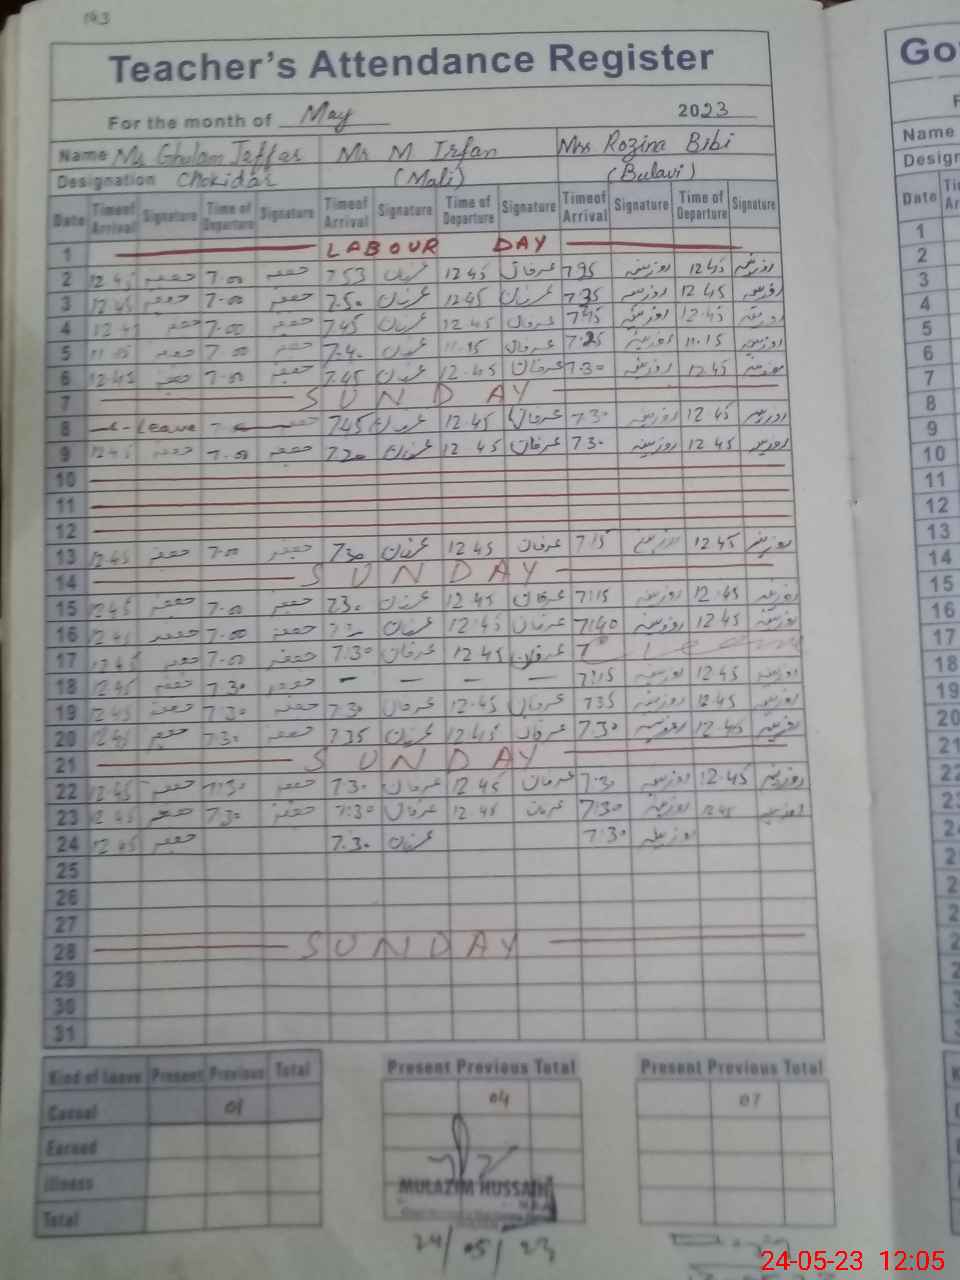 Teacher's Attendance Register
For the month of May 2023
Name Mr Ghulam Jaffar Mr M Irfan Mrs Rozina Bibi
Designation Chokidar (Mali) (Bulavi)
Date Timeof Arrival Signature Time of Departure Signature Timeof Arrival Signature Time of Departure Signature Timeof Arrival Signature Time of Departure Signature
1 LABOUR DAY
2 12 45 جعفر 7.00 جعفر 7.53 عرفان 12 45 عرفان 7.45 روزینہ 12.45 روزینہ
3 12 45 جعفر 7.00 جعفر 7.50 عرفان 12.45 عرفان 7.35 روزینہ 12 45 روزینہ
4 12.45 جعفر 7.00 جعفر 7.45 عرفان 12.45 عرفان 7.45 روزینہ 12.45 روزینہ
5 11.15 جعفر 7.00 جعفر 7.40 عرفان 11.15 عرفان 7.25 روزینہ 11.15 روزینہ
6 12.45 جعفر 7.00 جعفر 7.45 عرفان 12.45 عرفان 7.30 روزینہ 12.45 روزینہ
7 SUNDAY
8 Leave 7.45 عرفان 12.45 عرفان 7.30 روزینہ 12.45 روزینہ
9 12 45 جعفر 7.00 جعفر 7.20 عرفان 12 45 عرفان 7.30 روزینہ 12 45 روزینہ
10
11
12
13 12.45 جعفر 7.00 جعفر 7.30 عرفان 12 45 عرفان 7.15 روزینہ 12 45 روزینہ
14 SUNDAY
15 12.45 جعفر 7.00 جعفر 7.30 عرفان 12.45 عرفان 7:15 روزینہ 12.45 روزینہ
16 12.45 جعفر 7.00 جعفر عرفان 12.45 عرفان 7:40 روزینہ 12.45 روزینہ
17 12.45 جعفر 7.00 جعفر 7:30 عرفان 12.45 عرفان 7
18 12.45 جعفر 7.30 جعفر - - - - 7:15 روزینہ 12.45 روزینہ
19 12.45 جعفر 7.30 جعفر 7.30 عرفان 12.45 عرفان 7.35 روزینہ 12.45 روزینہ
20 12.45 جعفر 7.30 جعفر 7.35 عرفان 12.45 عرفان 7.30 روزینہ 12.45 روزینہ
21 SUNDAY
22 12.45 جعفر 7:30 جعفر 7.30 عرفان 12.45 عرفان 7:30 روزینہ 12.45 روزینہ
23 12.45 جعفر 7.30 جعفر 7:30 عرفان 12.45 عرفان 7:30 روزینہ 12.45 روزینہ
24 12.45 جعفر 7.30 عرفان 7:30 روزینہ
25
26
27
28 SUNDAY
29
30
31
Kind of Leave Present Previous Total Present Previous Total Present Previous Total
Casual 01 04 07
Earned
Illness
Total
MULAZIM HUSSAIN
24/05/23
24-05-23 12:05
Go
Name
Design
Date
1
2
3
4
5
6
7
8
9
10
11
12
13
14
15
16
17
18
19
20
21
22